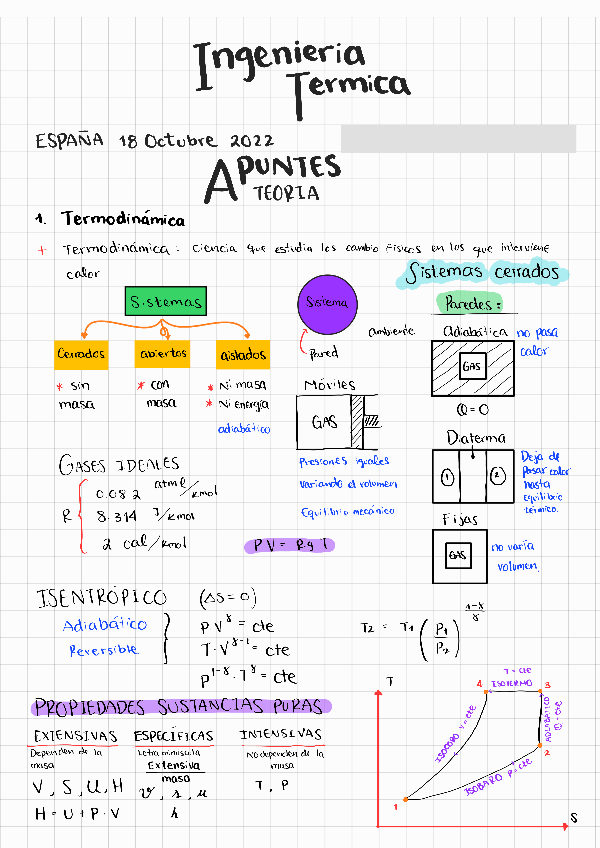 Ingenieria
Termica
ESPAÑA 18 Octubre 2022
APUNTES
TEORIA
1. Termodinámica
+ Termodinámica: Ciencia que estudia los cambio Físicos en los que interviene
calor
Sistemas cerrados
Sistemas
Cerrados
abiertos
aislados
* sin
masa
* con
masa
* Ni masa
* Ni energía
adiabático
Sistema
ambiente
Pared
Móviles
GAS
Presiones iguales
variando el volumen
Equilibrio mecánico
Paredes:
Adiabática
no pasa
calor
GAS
Q=0
Diaterma
1
2
Deja de
pasar calor
hasta
equilibrio
térmico.
Fijas
GAS
no varía
volumen.
GASES IDEALES
R
0.082 atm l/kmol
8.314 J/kmol
2 cal/kmol
ISENTRÓPICO (ΔS=0)
Adiabático
Reversible
PV^γ = cte
T·V^γ-1 = cte
P^1-γ·T^γ = cte
T2 = T1 (P1/P2)^1-γ/γ
PROPIEDADES SUSTANCIAS PURAS
EXTENSIVAS
Dependen de la
masa
V, S, U, H
H = U + P·V
ESPECÍFICAS
Letra minuscula
Extensiva
masa
v, s, u
h
INTENSIVAS
No dependen de la
masa
T, P
T
T=cte
4 ISOTERMO 3
ISOCORO V=cte
ADIABÁTICO
Q cte
2
ISOBARO P=cte
1
S